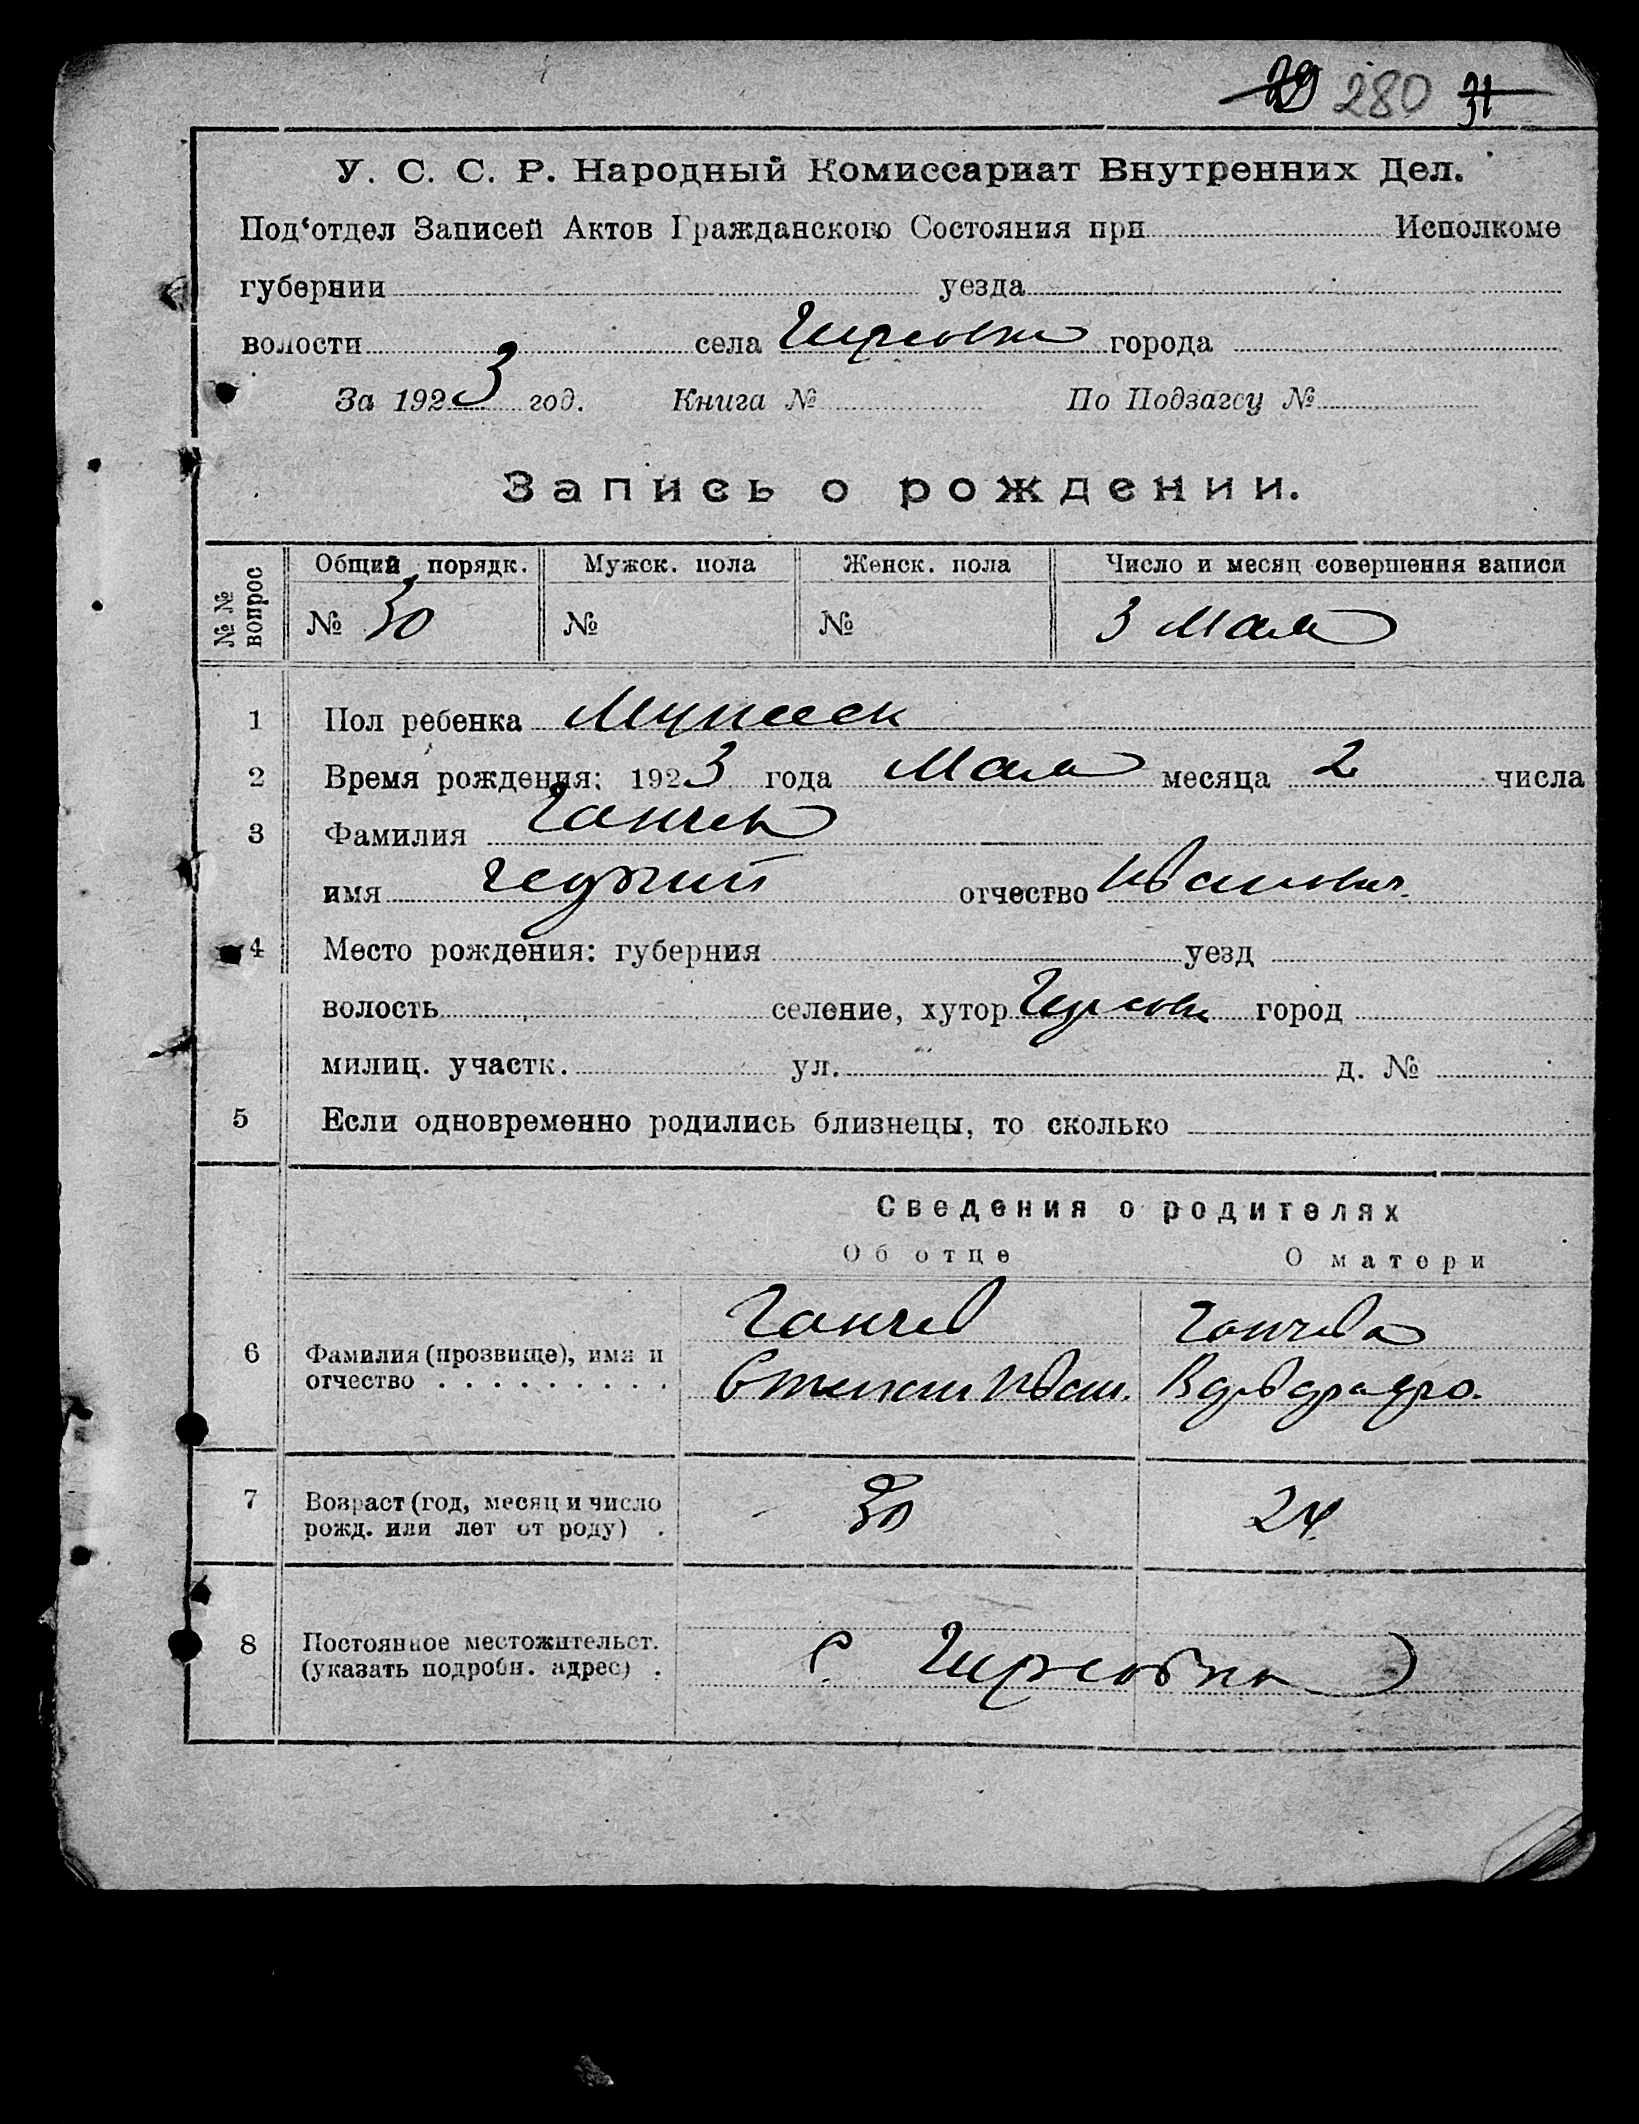 29 280 31
У. С. С. Р. Народный Комиссариат Внутренних Дел.
Под‘отдел Записей Актов Гражданского Состояния при Исполкоме
губернии уезда
волости села Гирсовки города
За 1923 год. Книга № По Подзагсу №
Запись о рождении.
№№ вопрос
Общий порядк. Мужск. пола Женск. пола Число и месяц совершения записи
№ 30 № № 3 Мая
1 Пол ребенка Мужеск
2 Время рождения: 1923 года Мая месяца 2 числа
3 Фамилия Ганчев
имя отчество Иванович
4 Место рождения: губерния уезд
волость селение, хутор город
милиц. участк. ул. д. №
5 Если одновременно родились близнецы, то сколько
Сведения о родителях
Об отце О матери
Ганчев Ганчева
6 Фамилия (прозвище), имя и
отчество . . . . . . . . .
Степан Иван.
7 Возраст (год, месяц и число
рожд. или лет от роду) .
30 24
8 Постоянное местожительст.
(указать подробн. адрес) .
с. Гирсовка